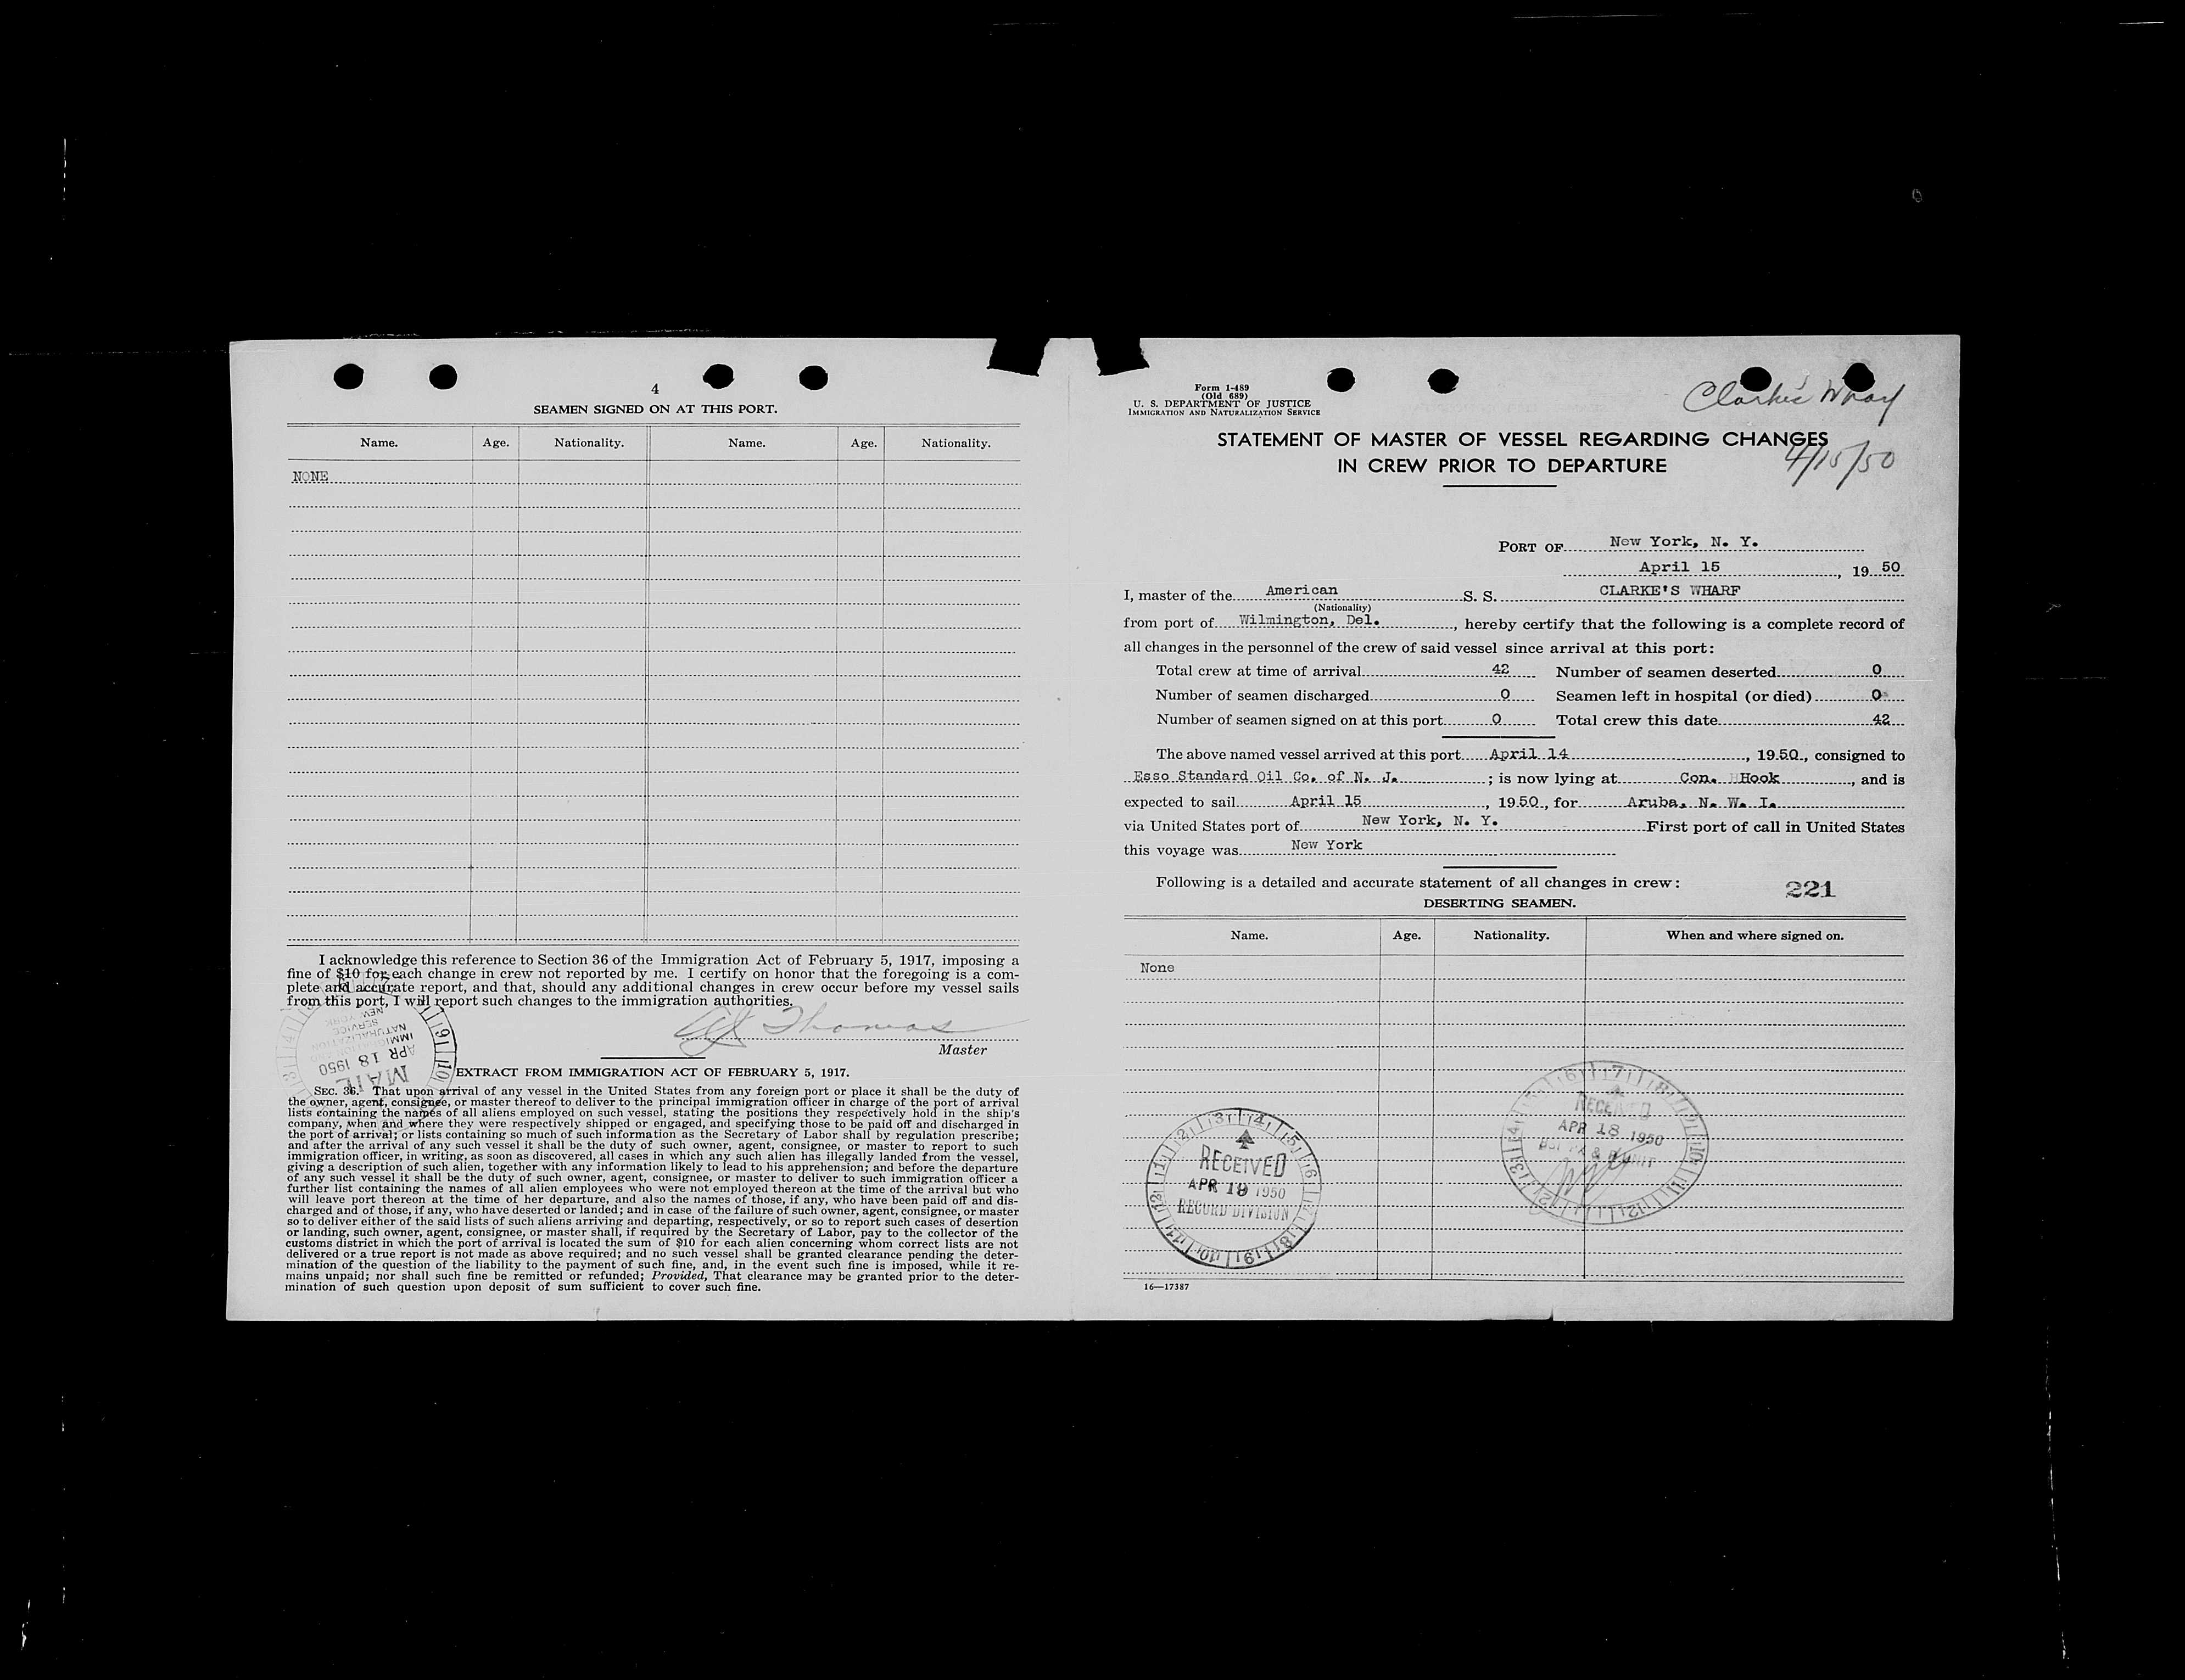 4
SEAMEN SIGNED ON AT THIS PORT.
Name. Age. Nationality. Name. Age. Nationality.
NONE
I acknowledge this reference to Section 36 of the Immigration Act of February 5, 1917, imposing a
fine of $10 for each change in crew not reported by me. I certify on honor that the foregoing is a com-
plete and accurate report, and that, should any additional changes in crew occur before my vessel sails
from this port, I will report such changes to the immigration authorities.
Thomas
Master
NEW YORK
SERVICE
NATURALIZATION
IMMIGRATION AND
APR 18 1950
MAIL
EXTRACT FROM IMMIGRATION ACT OF FEBRUARY 5, 1917.
SEC. 36. That upon arrival of any vessel in the United States from any foreign port or place it shall be the duty of
the owner, agent, consignee, or master thereof to deliver to the principal immigration officer in charge of the port of arrival
lists containing the names of all aliens employed on such vessel, stating the positions they respectively hold in the ship's
company, when and where they were respectively shipped or engaged, and specifying those to be paid off and discharged in
the port of arrival; or lists containing so much of such information as the Secretary of Labor shall by regulation prescribe;
and after the arrival of any such vessel it shall be the duty of such owner, agent, consignee, or master to report to such
immigration officer, in writing, as soon as discovered, all cases in which any such alien has illegally landed from the vessel,
giving a description of such alien, together with any information likely to lead to his apprehension; and before the departure
of any such vessel it shall be the duty of such owner, agent, consignee, or master to deliver to such immigration officer a
further list containing the names of all alien employees who were not employed thereon at the time of the arrival but who
will leave port thereon at the time of her departure, and also the names of those, if any, who have been paid off and dis-
charged and of those, if any, who have deserted or landed; and in case of the failure of such owner, agent, consignee, or master
so to deliver either of the said lists of such aliens arriving and departing, respectively, or so to report such cases of desertion
or landing, such owner, agent, consignee, or master shall, if required by the Secretary of Labor, pay to the collector of the
customs district in which the port of arrival is located the sum of $10 for each alien concerning whom correct lists are not
delivered or a true report is not made as above required; and no such vessel shall be granted clearance pending the deter-
mination of the question of the liability to the payment of such fine, and, in the event such fine is imposed, while it re-
mains unpaid; nor shall such fine be remitted or refunded; Provided, That clearance may be granted prior to the deter-
mination of such question upon deposit of sum sufficient to cover such fine.
Form I-489
(Old 689)
U. S. DEPARTMENT OF JUSTICE
IMMIGRATION AND NATURALIZATION SERVICE
Clarke's Wharf
STATEMENT OF MASTER OF VESSEL REGARDING CHANGES
IN CREW PRIOR TO DEPARTURE
4/15/50
PORT OF New York, N. Y.
April 15, 19 50
I, master of the American S. S. CLARKE'S WHARF
(Nationality)
from port of Wilmington, Del., hereby certify that the following is a complete record of
all changes in the personnel of the crew of said vessel since arrival at this port:
Total crew at time of arrival 42 Number of seamen deserted 0
Number of seamen discharged 0 Seamen left in hospital (or died) 0
Number of seamen signed on at this port 0 Total crew this date 42
The above named vessel arrived at this port April 14, 1950, consigned to
Esso Standard Oil Co. of N. J. ; is now lying at Con. Hook, and is
expected to sail April 15, 1950, for Aruba, N. W. I.
via United States port of New York, N. Y. First port of call in United States
this voyage was New York
Following is a detailed and accurate statement of all changes in crew: 221
DESERTING SEAMEN.
Name. Age. Nationality. When and where signed on.
None
RECEIVED
APR 18 1950
UNIT
RECEIVED
APR 19 1950
RECORD DIVISION
16—17387